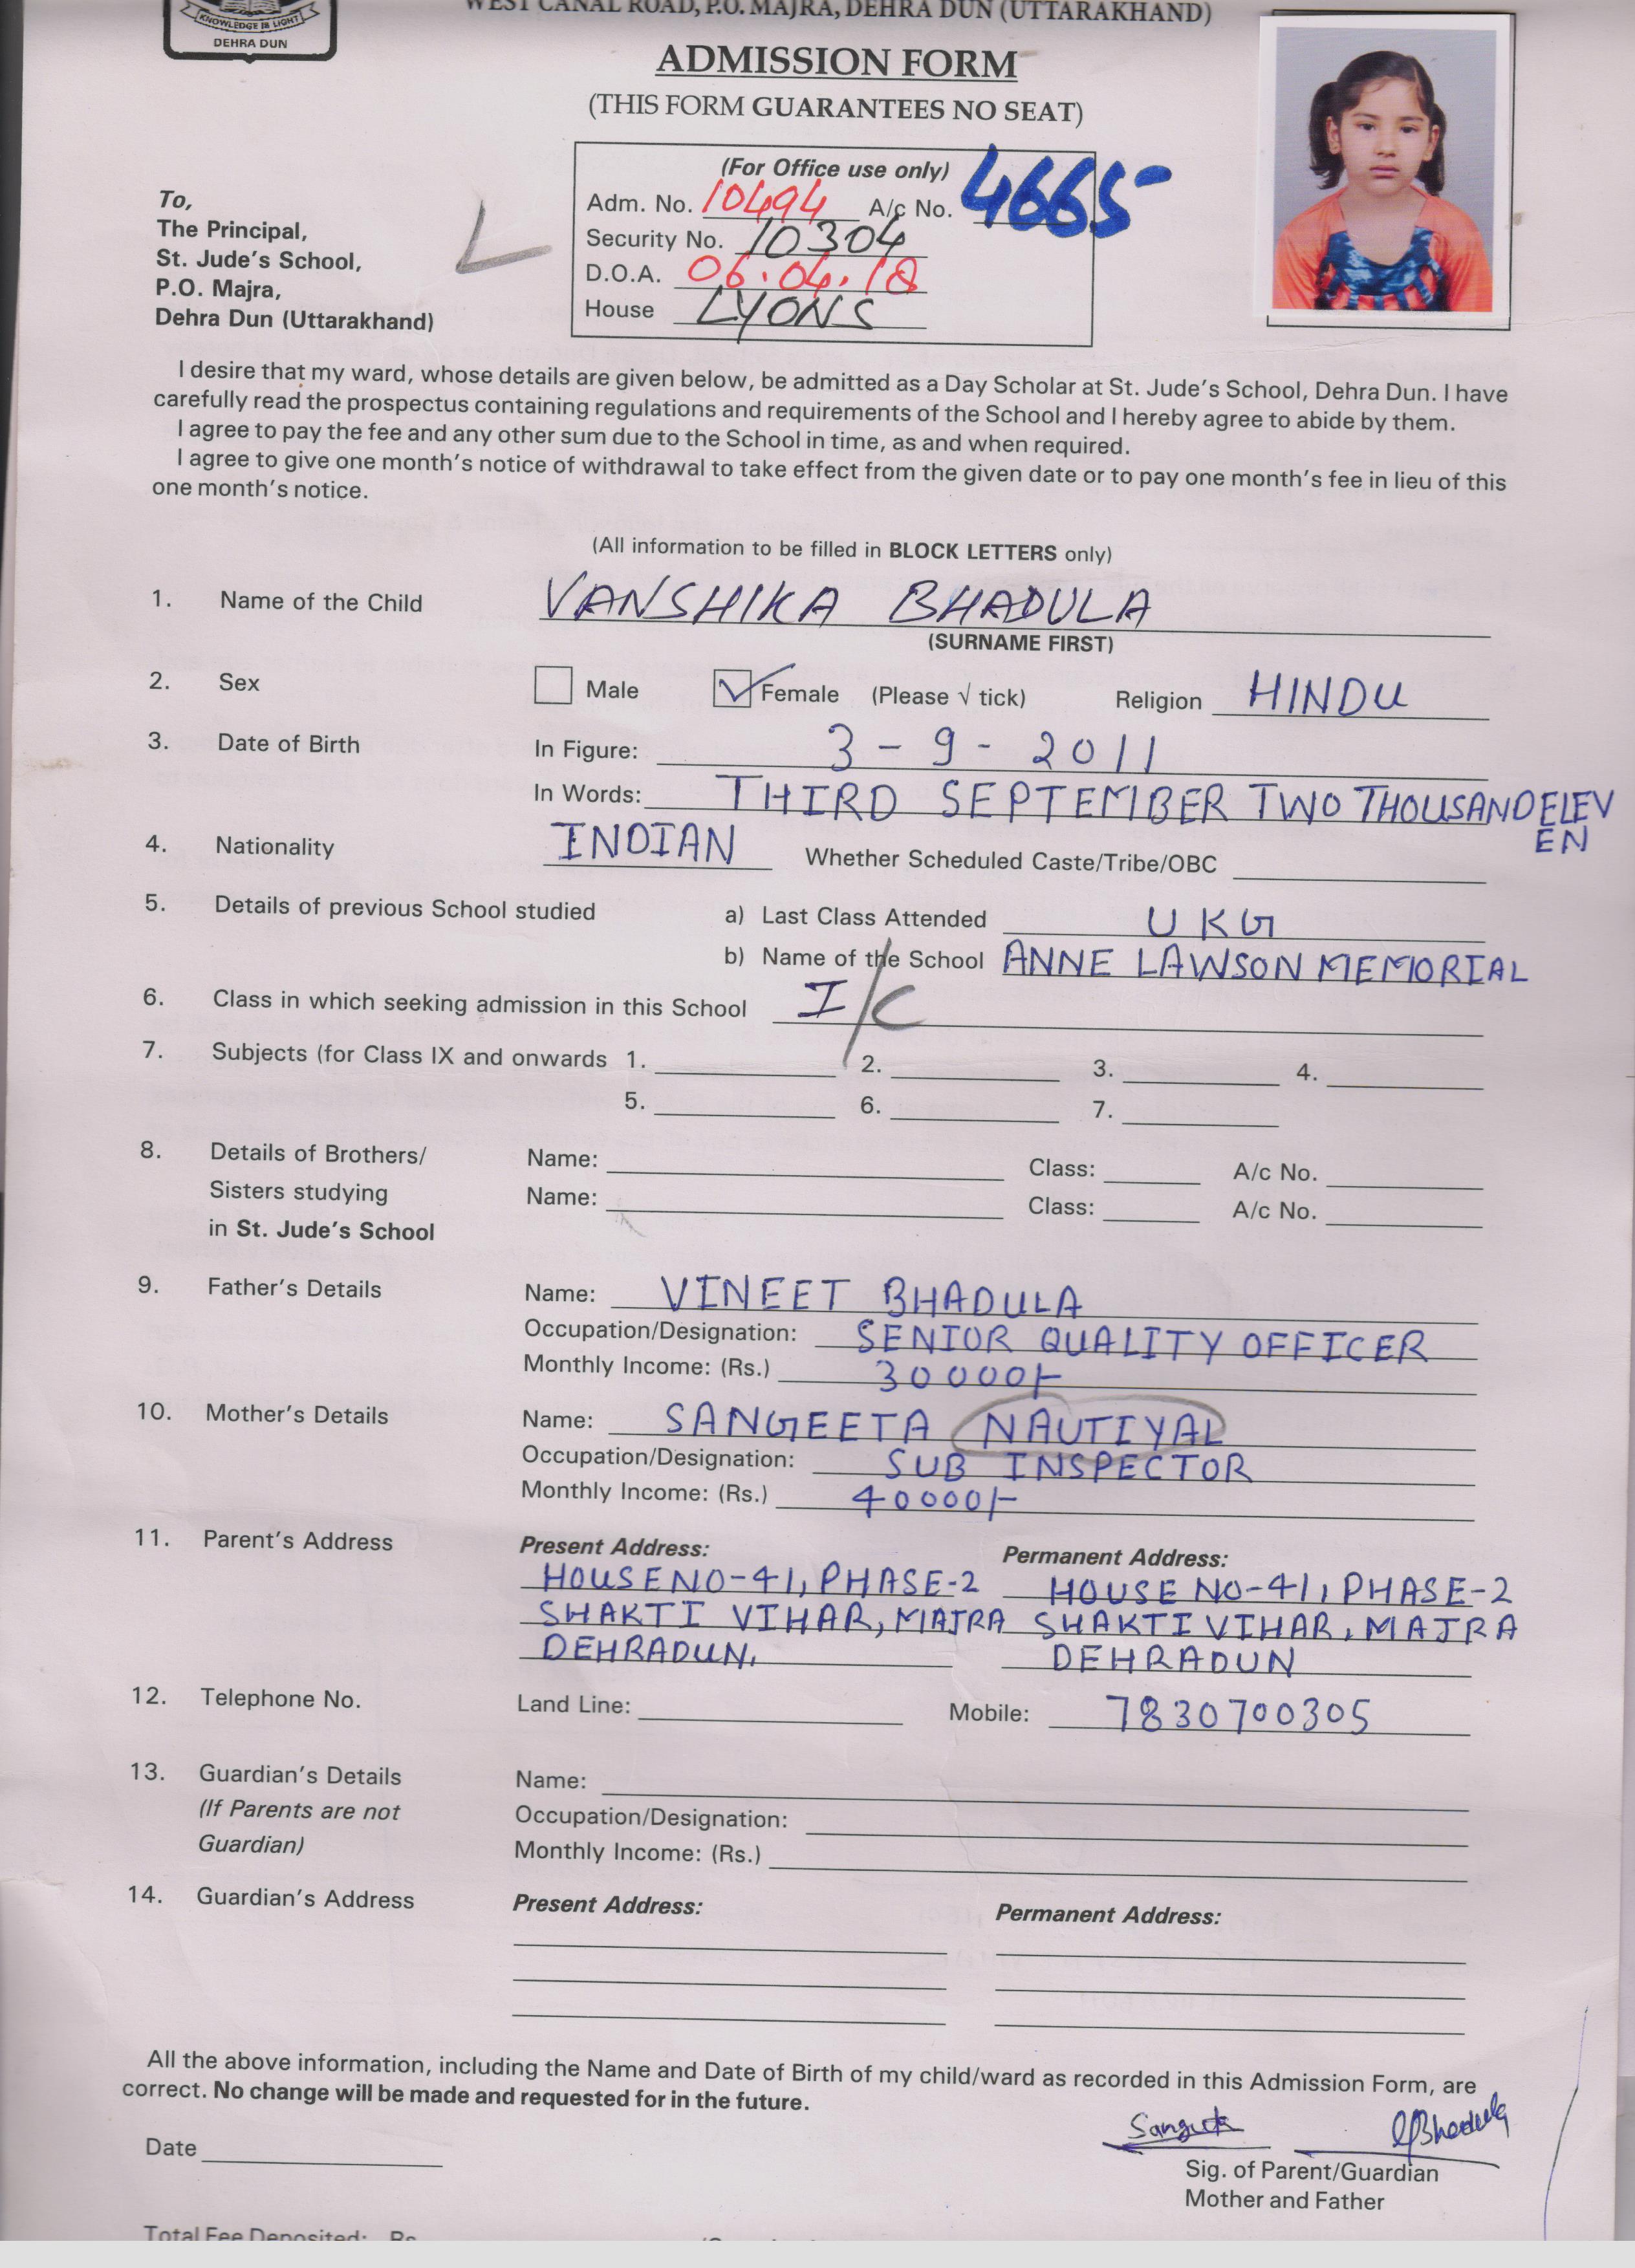 KNOWLEDGE IS LIGHT
DEHRA DUN
WEST CANAL ROAD, P.O. MAJRA, DEHRA DUN (UTTARAKHAND)
ADMISSION FORM
(THIS FORM GUARANTEES NO SEAT)
(For Office use only)
Adm. No. 10494 A/c No. 4665
Security No. 10304
D.O.A. 06.04.18
House LYONS
To,
The Principal,
St. Jude's School,
P.O. Majra,
Dehra Dun (Uttarakhand)
I desire that my ward, whose details are given below, be admitted as a Day Scholar at St. Jude's School, Dehra Dun. I have
carefully read the prospectus containing regulations and requirements of the School and I hereby agree to abide by them.
I agree to pay the fee and any other sum due to the School in time, as and when required.
I agree to give one month's notice of withdrawal to take effect from the given date or to pay one month's fee in lieu of this
one month's notice.
(All information to be filled in BLOCK LETTERS only)
1. Name of the Child VANSHIKA BHADULA
(SURNAME FIRST)
2. Sex Male Female (Please √ tick) Religion HINDU
3. Date of Birth In Figure: 3-9-2011
In Words: THIRD SEPTEMBER TWO THOUSAND ELEV
EN
4. Nationality INDIAN Whether Scheduled Caste/Tribe/OBC
5. Details of previous School studied a) Last Class Attended UKG
b) Name of the School ANNE LAWSON MEMORIAL
6. Class in which seeking admission in this School I/C
7. Subjects (for Class IX and onwards 1. 2. 3. 4.
5. 6. 7.
8. Details of Brothers/ Name: Class: A/c No.
Sisters studying Name: Class: A/c No.
in St. Jude's School
9. Father's Details Name: VINEET BHADULA
Occupation/Designation: SENIOR QUALITY OFFICER
Monthly Income: (Rs.) 30000/-
10. Mother's Details Name: SANGEETA NAUTIYAL
Occupation/Designation: SUB INSPECTOR
Monthly Income: (Rs.) 40000/-
11. Parent's Address Present Address: Permanent Address:
HOUSE NO-41, PHASE-2 HOUSE NO-41, PHASE-2
SHAKTI VIHAR, MAJRA SHAKTI VIHAR, MAJRA
DEHRADUN. DEHRADUN
12. Telephone No. Land Line: Mobile: 7830700305
13. Guardian's Details Name:
(If Parents are not Occupation/Designation:
Guardian) Monthly Income: (Rs.)
14. Guardian's Address Present Address: Permanent Address:
All the above information, including the Name and Date of Birth of my child/ward as recorded in this Admission Form, are
correct. No change will be made and requested for in the future.
Sangeeta Bhadula
Date
Sig. of Parent/Guardian
Mother and Father
Total Fee Deposited: Rs.